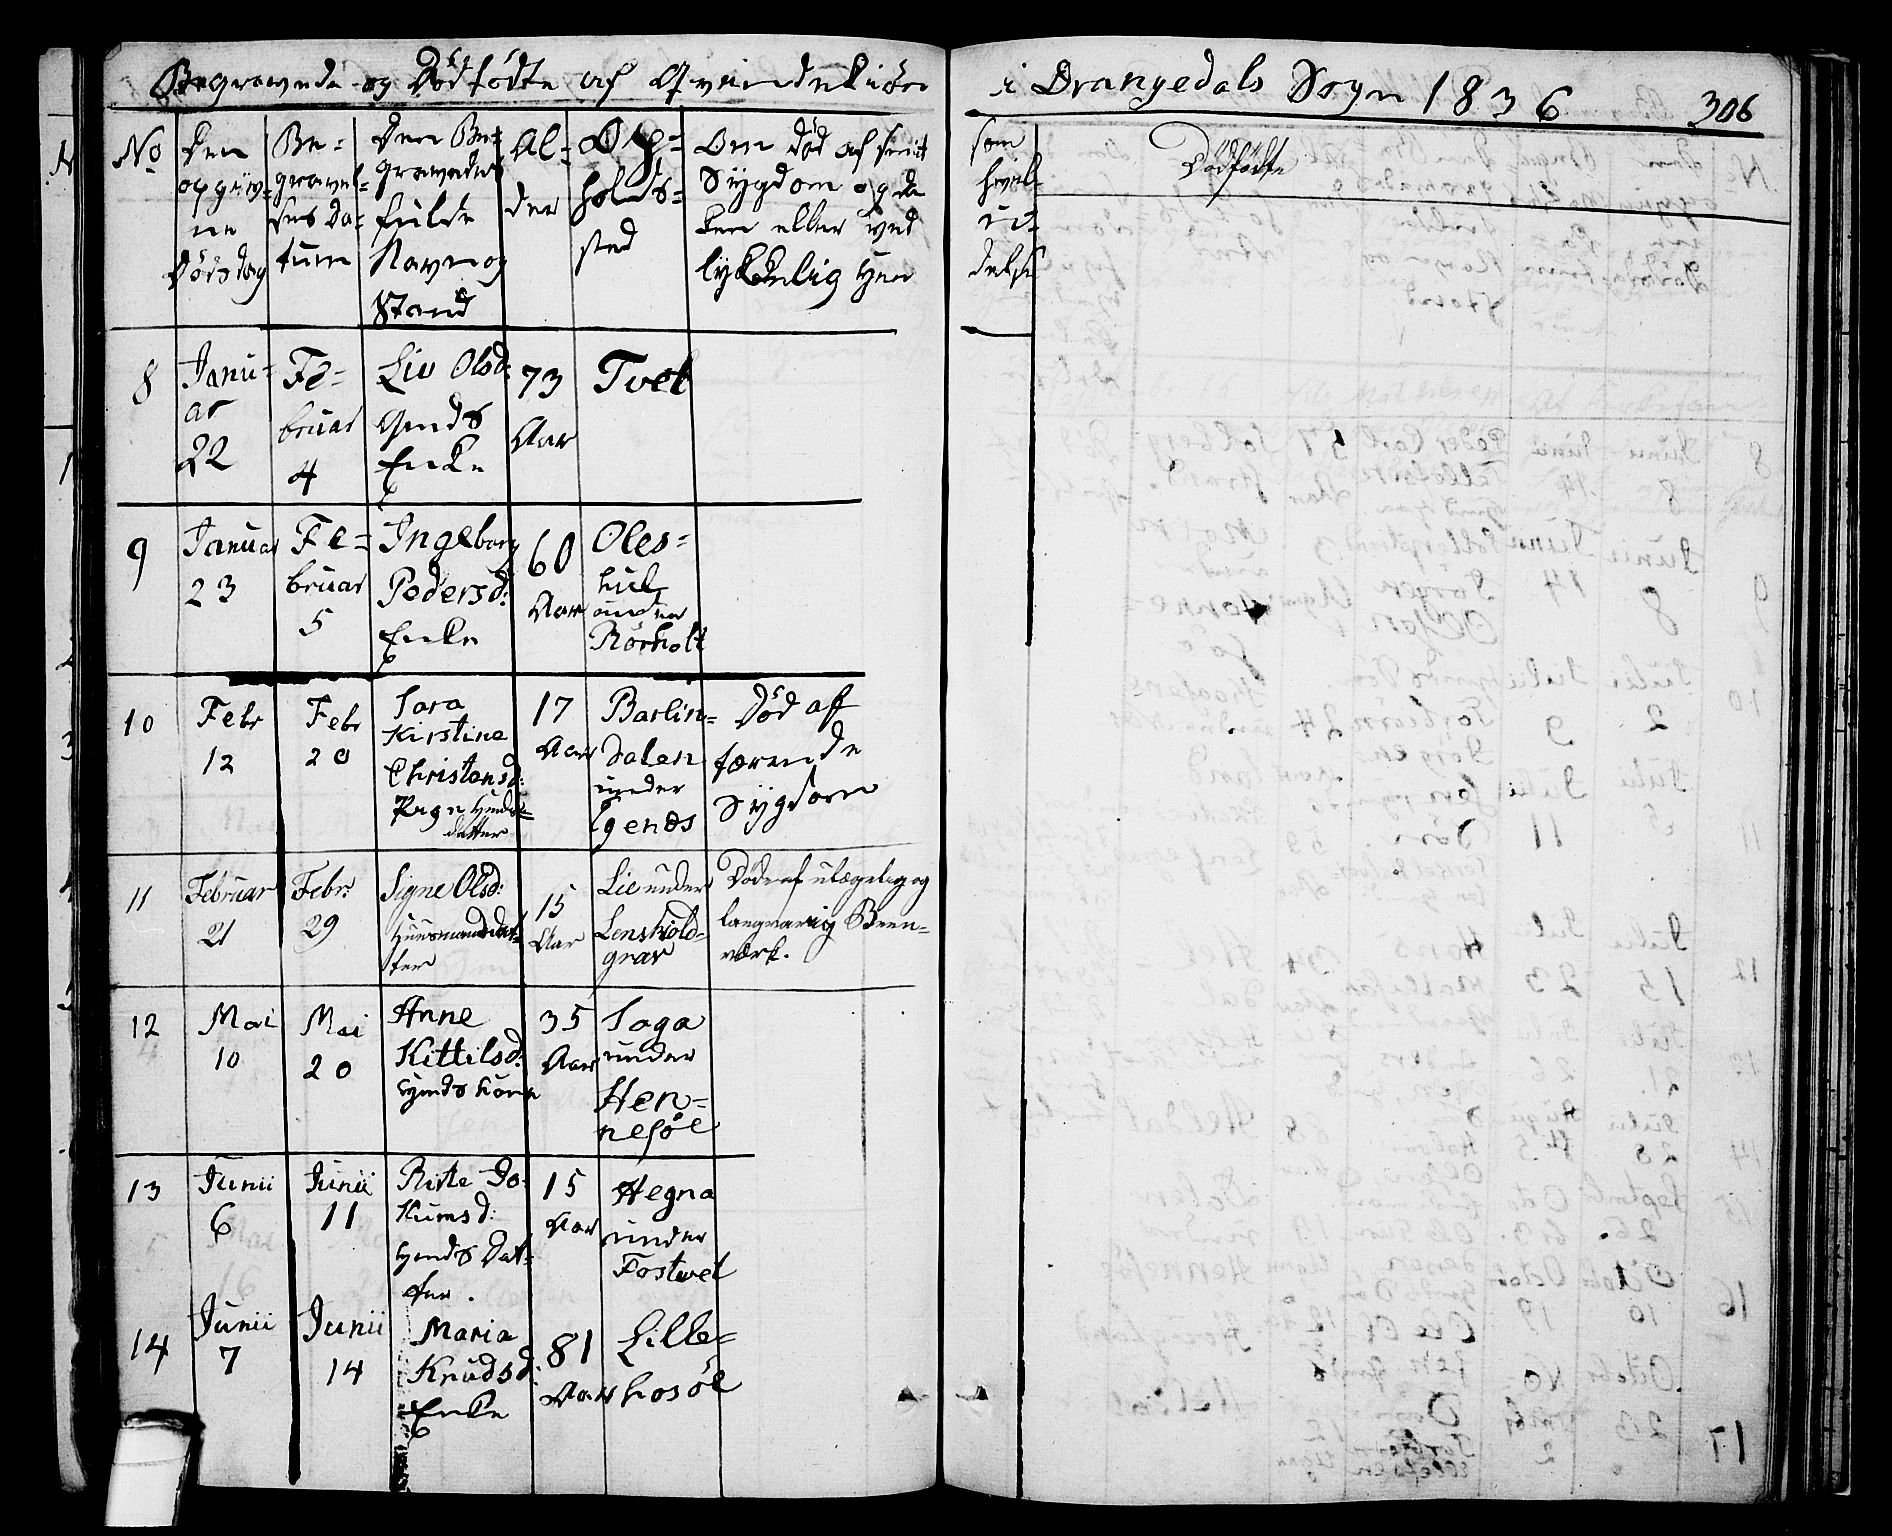 Begravede og Dödfödte af Qvindekiön i Drangedals Sogn 1836 306
No
Den opgivne Dödsdag
Begravelses Datum
Den Begravedes fulde Navn og Stand
Alder
Opholdssted
Om död af smit Sÿgdom og da ken eller ved lykkelig Hen
som hvil
delse
Dödfödte
8 Januar 22 Februar 4 Liv Olsd: Gmds Enke 73 Aar Tvet
9 Januar 23 Februar 5 Ingeborg Pedersd: Enke 60 Aar Oleshul under Rörholt
10 Febr 12 Febr 20 Sara Kirstine Christensd: Huusdatter 17 Aar Barlindalen under Död af tærende Sÿgdom
11 Februar 21 Febr: 29 Signe Olsd: Huusmandsdatter 15 Aar Lie under Lenskoldgrav Döde af ulægelig og langvarig Beenværk.
12 Mai 10 Mai 20 Anne Kittilsd: Gmds Kone 35 Aar Saga under Hennesöe
13 Junii 6 Junii 11 Birte Jokumsd: Gmds Datter. 15 Aar Hegna under Fostvet
14 Junii 7 Junii 14 Maria Knudsd: Enke 81 Aar Lillehosöe